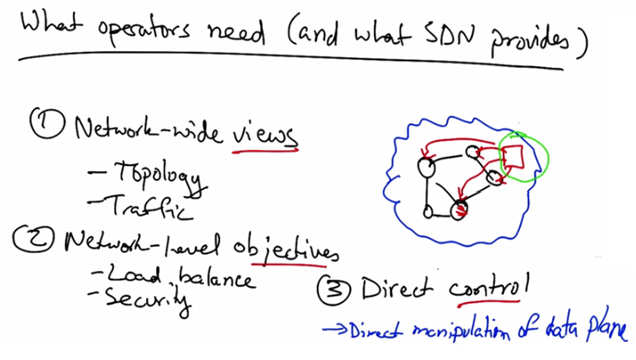 What operators need (and what SDN provides)
① Network-wide views
- Topology
- Traffic
② Network-level objectives
- Load balance
- Security
③ Direct control
→ Direct manipulation of data plane